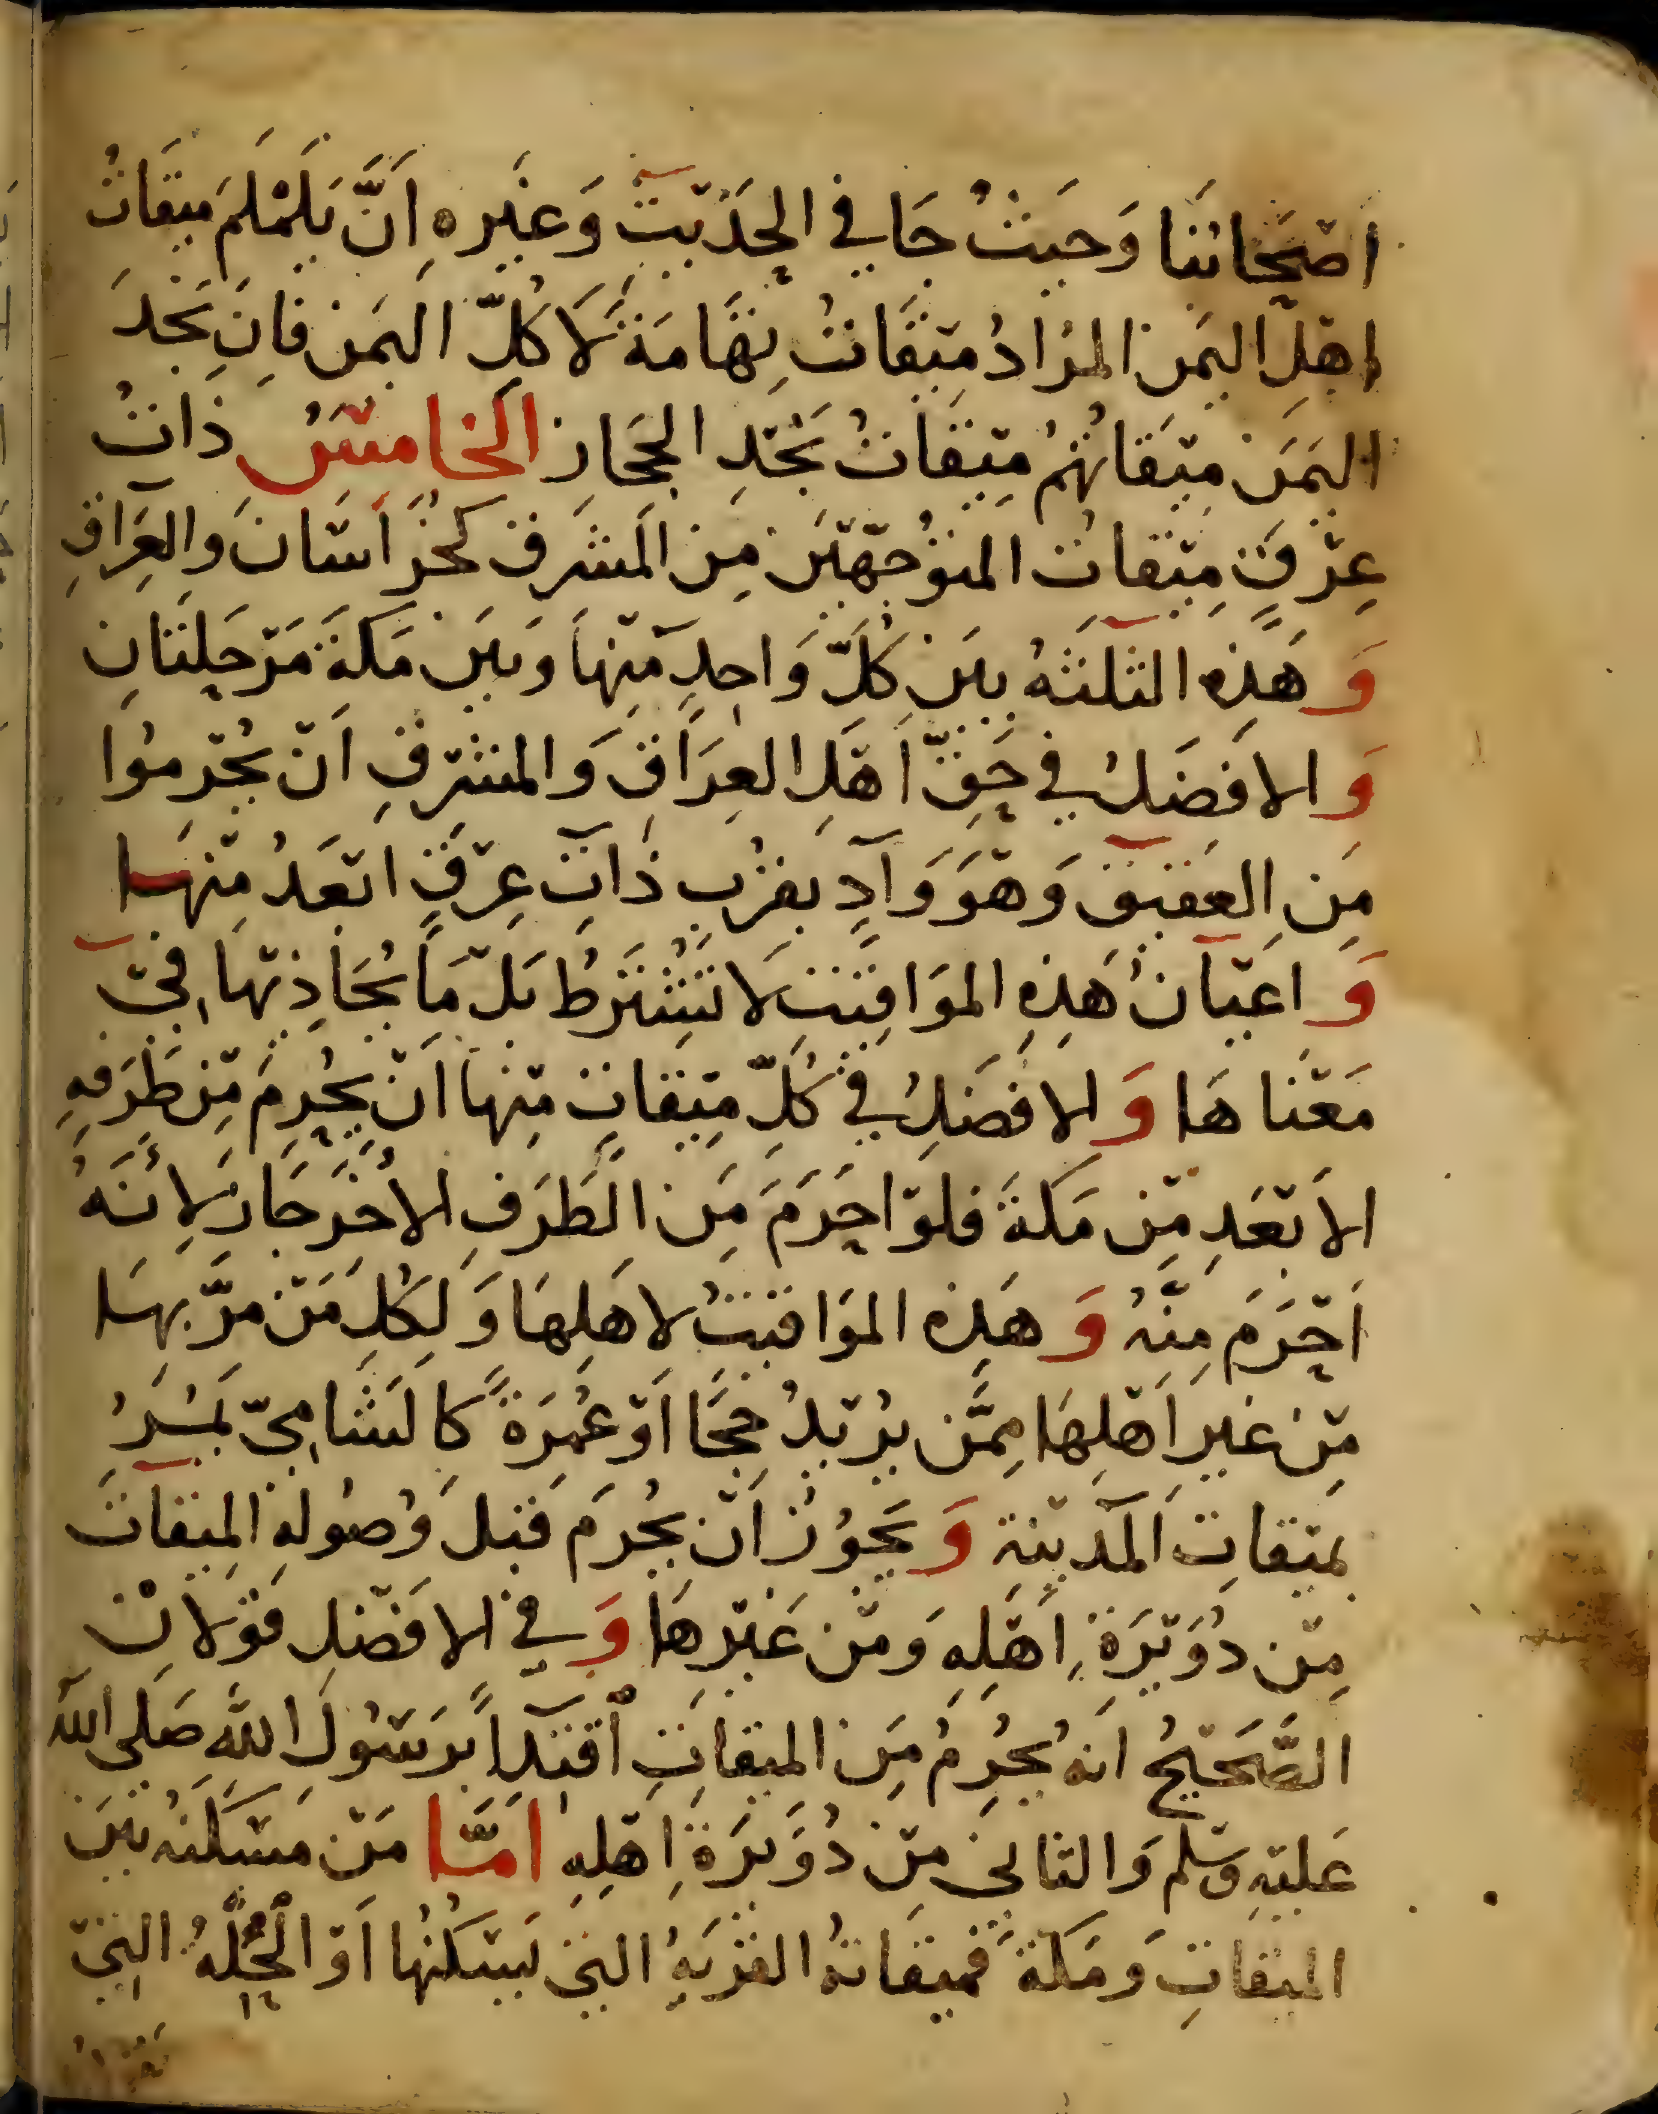 اَصْحَابُنَا وَحَيْثُ جَا فِي الحَدِيْثِ وَغَيْرِهِ اَنَّ يَلَمْلَمَ مِيْقَاتُ
اهْلِ اليَمَنِ المُرَادُ مِيْقَاتُ تِهَامَةَ لَا كُلّ اليَمَن فَاِنَ نَجْدَ
اليَمَنِ مِيْقَاتُهُمْ مِيْقَاتُ نَجْدِ الحِجَازِ الخَامِسُ ذَاتُ
عِرْقٍ مِيْقَاتُ المتَوُجِّهِيْنَ مِنَ المَشرِقِ كخُرَاسَانَ وَالعِرَاقِ
وَهَذِهِ الثلثَةُ بيْنَ كُلِّ وَاحِدٍ مِنْهَا وَبيْنَ مَكَةَ مَرْحَلتَانِ
وَالافضَلُ في حَقِّ اَهْلِ العِرَاقِ وَالمشْرِقِ اَنْ يُحْرِمُوا
مِنَ العَقيْقِ وَهْوَ وَادٍ بقرْبِ ذَاتِ عِرْقٍ ابْعَدُ مِنْهَا
وَاعْيَانُ هَذِهِ المَوَاقِيْتِ لَا تُشْتَرَطُ بَلْ مَا يُحَاذِيْهَا فِيْ
مَعْنَاهَا وَالافْضَلُ فِي كُلِّ مِيْقَاتٍ مِنْهَا اَنْ يُحْرِمَ مِنْ طَرَفِهِ
الاَبْعَدِ مِنْ مَكَةَ فلَوْ احْرَمَ مِنَ الطَرَفِ الاخَرِ جَازَ لِاَنَهُ
اَحْرَمَ مِنْهُ وَهَذِهِ المَوَاقيْتُ لاهَلِهَا وَلِكُلِ مَنْ مَرَّ بهَا
مِنْ غيْرِ اَهْلِهَا مِمَّن يرُيْدُ حَجًا اَوْ عُمْرَةً كالشَامِيّ يَمُرُ
بمِيْقَاتِ المَدِيْنةِ وَيَجُوْزُ اَنْ يُحْرِمَ قبْلَ وُصُولِهِ المِيْقَاتَ
مِنْ دُوَيْرَةِ اَهْلِهِ وَمِنْ غَيْرِهَا وَفِي الافْضَلِ قَوْلَانْ
الصَّحِيْحُ انهُ يُحْرِمُ مِنَ المِيْقاتِ اقتِدَاً برَسُولِ اللهِ صَلى الله
عَليْهِ وَسْلم وَالثانيْ مِنْ دُوَيْرَةِ اَهْلِهِ اَمَّا مَنْ مَسْكَنُه بَيْنَ
المِيْقَاتِ وَمَكَةَ فميْقَاتُهُ القَرْيَةُ التيْ يَسْكنُهَا اَوْ الحِلّةُ التِيْ